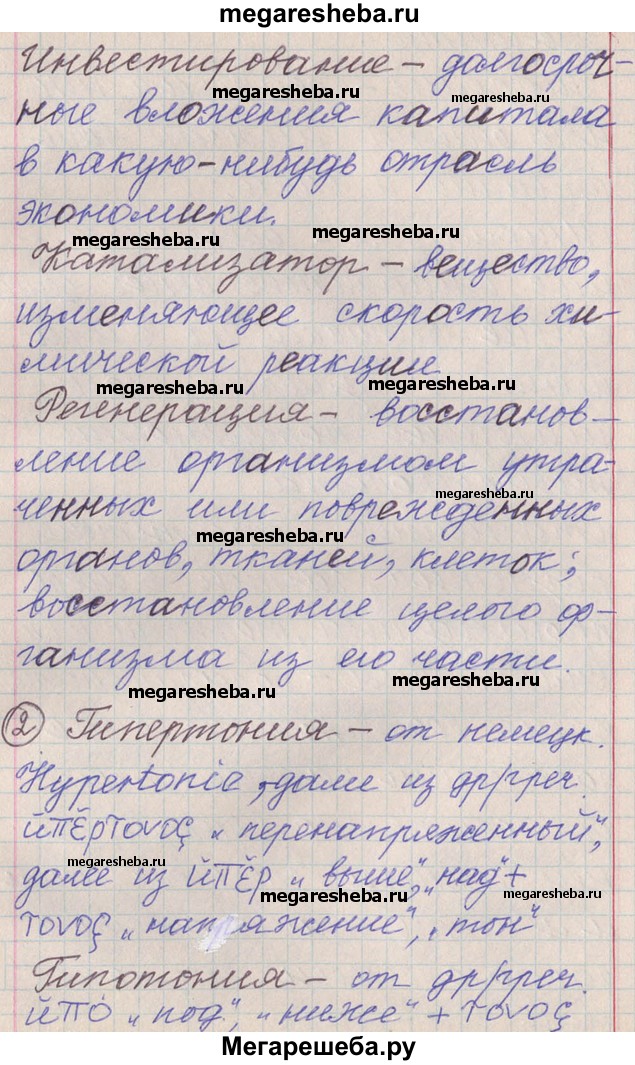 megaresheba.ru
Инвестирование – долгосроч-
megaresheba.ru
megaresheba.ru
ные вложения капитала
в какую-нибудь отрасль
экономики.
megaresheba.ru
megaresheba.ru
Катализатор – вещество,
изменяющее скорость хи-
мической реакции
megaresheba.ru
megaresheba.ru
Регенерация – восстанов-
ление организмом утра-
megaresheba.ru
ченных или повреждённых
megaresheba.ru
органов, тканей, клеток;
восстановление целого ор-
ганизма из его части.
megaresheba.ru
megaresheba.ru
2 Гипертония – от немецк.
Hypertonie, далее из др/греч.
ὑπέρτονος „перенапряженный“,
megaresheba.ru
далее из ὑπέρ „выше“, „над“ +
megaresheba.ru
megaresheba.ru
τονος „напряжение“, „тон“
Гипотония – от др/греч.
ὑπό „под“, „ниже“ + τονος
Мегарешеба.ру